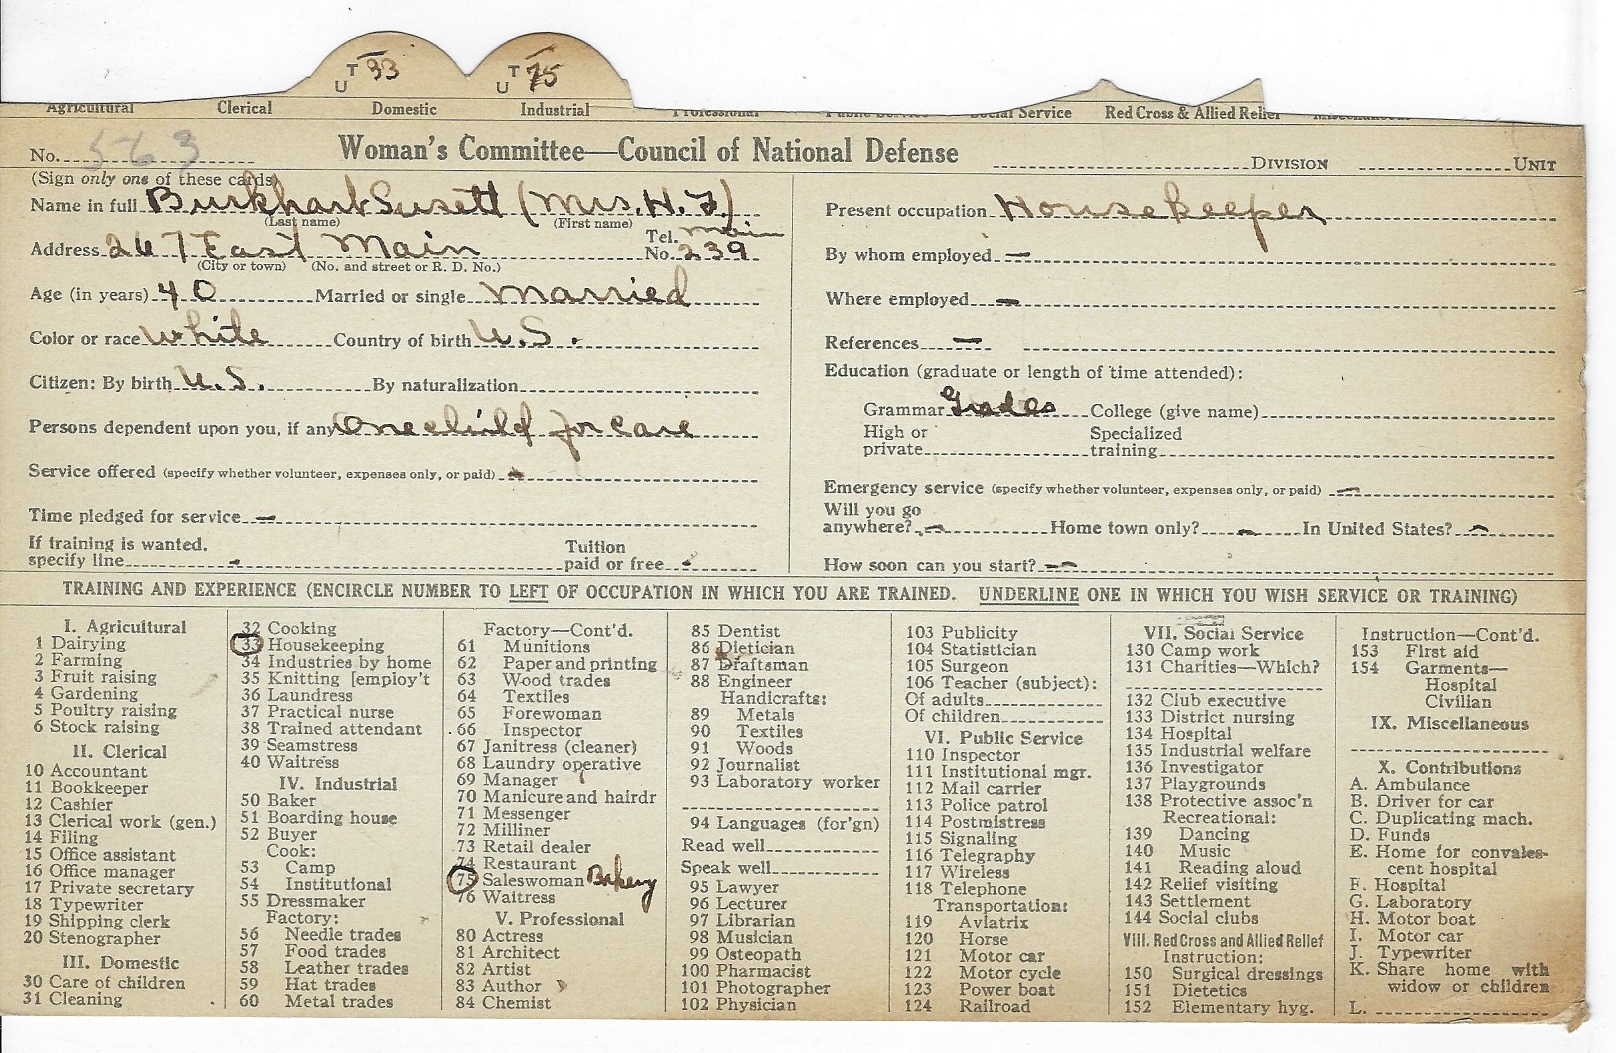 UT 33 UT 75
Agricultural Clerical Domestic Industrial Professional Public Service Social Service Red Cross & Allied Relief Miscellaneous
No. 563 Woman's Committee—Council of National Defense DIVISION UNIT
(Sign only one of these cards)
Name in full Burkhart Susett (Mrs. H. F.)
(Last name) (First name)
Address 267 East Main Tel. No. Main 239
(City or town) (No. and street or R. D. No.)
Age (in years) 40 Married or single Married
Color or race White Country of birth U.S.
Citizen: By birth U.S. By naturalization
Persons dependent upon you, if any One child for care
Service offered (specify whether volunteer, expenses only, or paid) -
Time pledged for service —
If training is wanted, Tuition
specify line - paid or free -
Present occupation Housekeeper
By whom employed —
Where employed —
References —
Education (graduate or length of time attended):
Grammar Grades College (give name)
High or Specialized
private training
Emergency service (specify whether volunteer, expenses only, or paid) —
Will you go
anywhere? - Home town only? - In United States? -
How soon can you start? —
TRAINING AND EXPERIENCE (ENCIRCLE NUMBER TO LEFT OF OCCUPATION IN WHICH YOU ARE TRAINED. UNDERLINE ONE IN WHICH YOU WISH SERVICE OR TRAINING)
I. Agricultural
1 Dairying
2 Farming
3 Fruit raising
4 Gardening
5 Poultry raising
6 Stock raising
II. Clerical
10 Accountant
11 Bookkeeper
12 Cashier
13 Clerical work (gen.)
14 Filing
15 Office assistant
16 Office manager
17 Private secretary
18 Typewriter
19 Shipping clerk
20 Stenographer
III. Domestic
30 Care of children
31 Cleaning
32 Cooking
33 Housekeeping
34 Industries by home
35 Knitting [employ't
36 Laundress
37 Practical nurse
38 Trained attendant
39 Seamstress
40 Waitress
IV. Industrial
50 Baker
51 Boarding house
52 Buyer
Cook:
53 Camp
54 Institutional
55 Dressmaker
Factory:
56 Needle trades
57 Food trades
58 Leather trades
59 Hat trades
60 Metal trades
Factory—Cont'd.
61 Munitions
62 Paper and printing
63 Wood trades
64 Textiles
65 Forewoman
66 Inspector
67 Janitress (cleaner)
68 Laundry operative
69 Manager
70 Manicure and hairdr
71 Messenger
72 Milliner
73 Retail dealer
74 Restaurant
75 Saleswoman Bakery
76 Waitress
V. Professional
80 Actress
81 Architect
82 Artist
83 Author
84 Chemist
85 Dentist
86 Dietician
87 Draftsman
88 Engineer
Handicrafts:
89 Metals
90 Textiles
91 Woods
92 Journalist
93 Laboratory worker
94 Languages (for'gn)
Read well
Speak well
95 Lawyer
96 Lecturer
97 Librarian
98 Musician
99 Osteopath
100 Pharmacist
101 Photographer
102 Physician
103 Publicity
104 Statistician
105 Surgeon
106 Teacher (subject):
Of adults
Of children
VI. Public Service
110 Inspector
111 Institutional mgr.
112 Mail carrier
113 Police patrol
114 Postmistress
115 Signaling
116 Telegraphy
117 Wireless
118 Telephone
Transportation:
119 Aviatrix
120 Horse
121 Motor car
122 Motor cycle
123 Power boat
124 Railroad
VII. Social Service
130 Camp work
131 Charities—Which?
132 Club executive
133 District nursing
134 Hospital
135 Industrial welfare
136 Investigator
137 Playgrounds
138 Protective assoc'n
Recreational:
139 Dancing
140 Music
141 Reading aloud
142 Relief visiting
143 Settlement
144 Social clubs
VIII. Red Cross and Allied Relief
Instruction:
150 Surgical dressings
151 Dietetics
152 Elementary hyg.
Instruction—Cont'd.
153 First aid
154 Garments—
Hospital
Civilian
IX. Miscellaneous
X. Contributions
A. Ambulance
B. Driver for car
C. Duplicating mach.
D. Funds
E. Home for convales-
cent hospital
F. Hospital
G. Laboratory
H. Motor boat
I. Motor car
J. Typewriter
K. Share home with
widow or children
L.